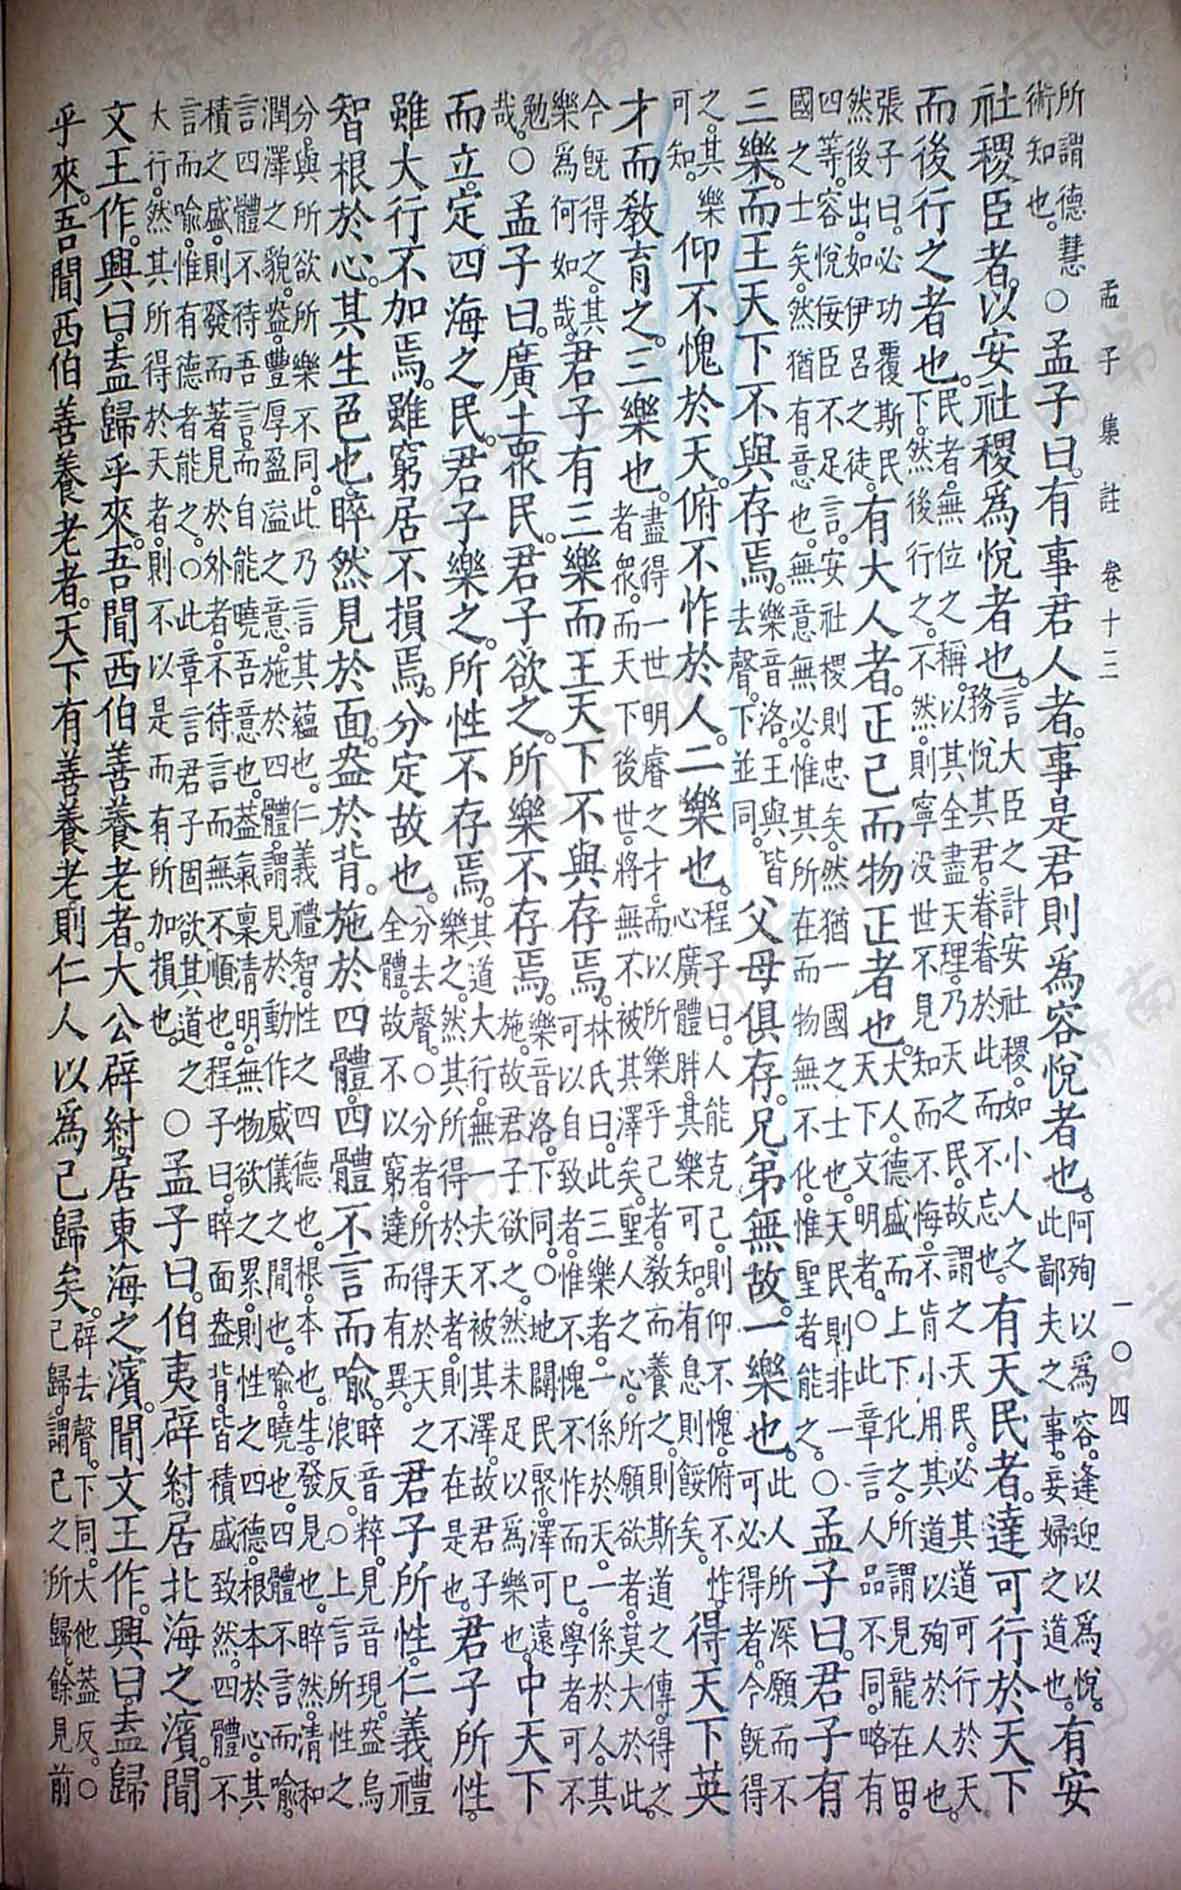 孟子集註 卷十三 一〇四
所謂德慧術知也。〇孟子曰。有事君人者。事是君則爲容悅者也。阿殉以爲容。逢迎以爲悅。此鄙夫之事。妾婦之道也。有安
社稷臣者。以安社稷爲悅者也。言大臣之計安社稷。如小人之務悅其君。眷眷於此而不忘也。有天民者。達可行於天下
而後行之者也。民者。無位之稱。以其全盡天理。乃天之民。故謂之天民。必其道可行於天下。然後行之。不然。則寧没世不見知而不悔。不肯小用其道以殉於人也。
張子曰。必功覆斯民然後出。如伊呂之徒。有大人者。正己而物正者也。大人。德盛而上下化之。所謂見龍在田。天下文明者。〇此章言人品不同。略有
四等。容悅佞臣不足言。安社稷則忠矣。然猶一國之士也。天民則非一國之士矣。然猶有意也。無意無必。惟其所在而物無不化。惟聖者能之。〇孟子曰。君子有
三樂。而王天下不與存焉。樂音洛。王與皆去聲。下並同。父母俱存。兄弟無故。一樂也。此人所深願而不可必得者。今既得
之。其樂可知。仰不愧於天。俯不怍於人。二樂也。程子曰。人能克己。則仰不愧。俯不怍。心廣體胖。其樂可知。有息則餒矣。得天下英
才而教育之。三樂也。盡得一世明睿之才。而以所樂乎己者。教而養之。則斯道之傳。得之者衆。而天下後世。將無不被其澤矣。聖人之心。所願欲者。莫大於此。
今既得之。其樂爲何如哉。君子有三樂而王天下不與存焉。林氏曰。此三樂者。一係於天。一係於人。其可以自致者。惟不愧不怍而已。學者可不
勉哉。〇孟子曰。廣土衆民。君子欲之。所樂不存焉。樂音洛。下同。〇地闢民聚。澤可遠施。故君子欲之。然未足以爲樂也。中天下
而立。定四海之民。君子樂之。所性不存焉。其道大行。無一夫不被其澤。故君子樂之。然其所得於天者。則不在是也。君子所性。
雖大行不加焉。雖窮居不損焉。分定故也。分去聲。〇分者。所得於天之全體。故不以窮達而有異。君子所性。仁義禮
智根於心。其生色也。睟然見於面。盎於背。施於四體。四體不言而喻。睟音粹。見音現。盎烏浪反。〇上言所性之
分。與所欲所樂不同。此乃言其蘊也。仁義禮智。性之四德也。根。本也。生。發見也。睟然。清和潤澤之貌。盎。豐厚盈溢之意。施於四體。謂見於動作威儀之間也。喻。曉也。四體不言而喻。
言四體不待吾言。而自能曉吾意也。蓋氣稟清明。無物欲之累。則性之四德。根本於心。其積之盛。則發而著見於外者。不待言而無不順也。程子曰。睟面盎背。皆積盛致然。四體不
言而喻。惟有德者能之。〇此章言君子固欲其道之大行。然其所得於天者。則不以是而有所加損也。〇孟子曰。伯夷辟紂。居北海之濱。聞
文王作。興曰。盍歸乎來。吾聞西伯善養老者。大公辟紂。居東海之濱。聞文王作。興曰。盍歸
乎來。吾聞西伯善養老者。天下有善養老。則仁人以爲己歸矣。辟去聲。下同。大他蓋反。〇己歸。謂己之所歸。餘見前